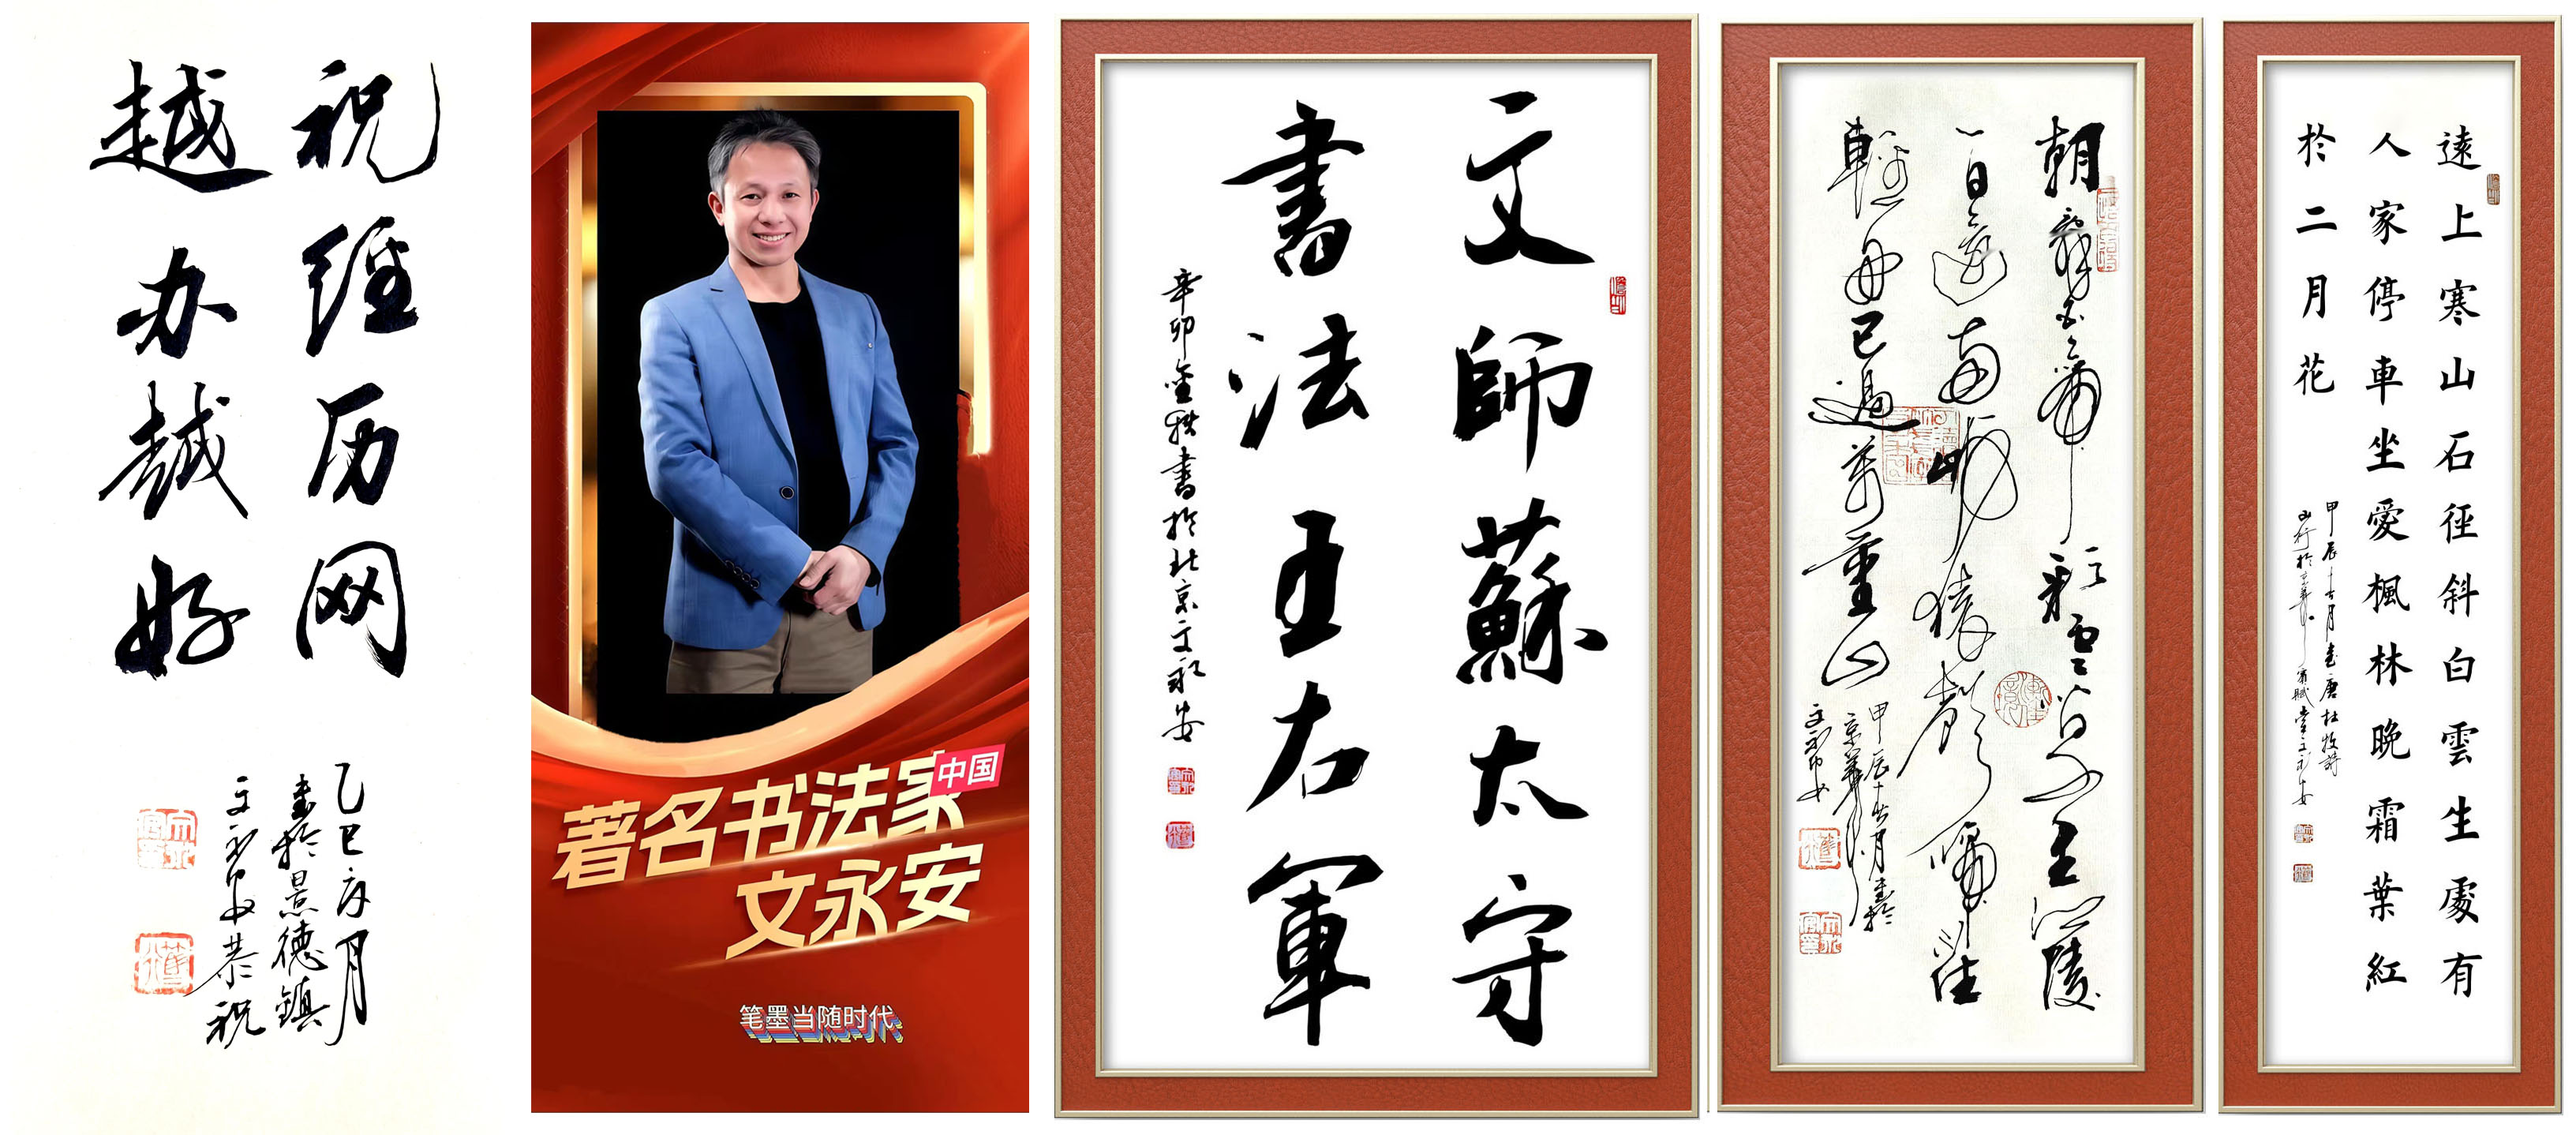 祝经历网
越办越好
乙巳亥月
書於景德鎮
文永安恭祝
著名书法家
中国
文永安
笔墨当随时代
文師蘇太守
書法王右軍
辛卯金秋書於北京文永安
朝辭白帝彩雲間千里江陵
一日還兩岸猿聲啼不住
輕舟已過萬重山
甲辰十月書於
京華
文永安
遠上寒山石徑斜白雲生處有
人家停車坐愛楓林晚霜葉紅
於二月花
甲辰十月書唐杜牧詩
山行於京華賦堂文永安